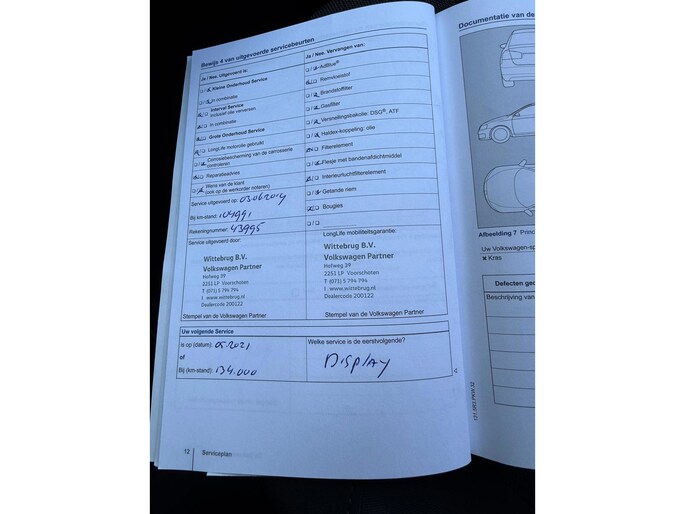 Bewijs 4 van uitgevoerde servicebeurten
Ja / Nee. Uitgevoerd is:
Kleine Onderhoud Service
In combinatie
Interval Service
inclusief olie verversen
In combinatie
Grote Onderhoud Service
LongLife motorolie gebruikt
Corrosiebescherming van de carrosserie
controleren
Reparatieadvies
Wens van de klant
(ook op de werkorder noteren)
Service uitgevoerd op:
Bij km-stand: 104991
Rekeningnummer: 43995
Service uitgevoerd door:
Wittebrug B.V.
Volkswagen Partner
Hofweg 39
2251 LP Voorschoten
T (071) 5 794 794
I www.wittebrug.nl
Dealercode 200122
Stempel van de Volkswagen Partner
Ja / Nee. Vervangen van:
AdBlue®
Remvloeistof
Brandstoffilter
Gasfilter
Versnellingsbakolie: DSG®, ATF
Haldex-koppeling: olie
Filterelement
Flesje met bandenafdichtmiddel
Interieurluchtfilterelement
Getande riem
Bougies
LongLife mobiliteitsgarantie:
Wittebrug B.V.
Volkswagen Partner
Hofweg 39
2251 LP Voorschoten
T (071) 5 794 794
I www.wittebrug.nl
Dealercode 200122
Stempel van de Volkswagen Partner
Uw volgende Service
is op (datum): 05-2021
of
Bij (km-stand): 134.000
Welke service is de eerstvolgende?
Display
12 Serviceplan
Documentatie van de
Afbeelding 7 Princ
Uw Volkswagen-sp
× Kras
Defecten gec
Beschrijving van